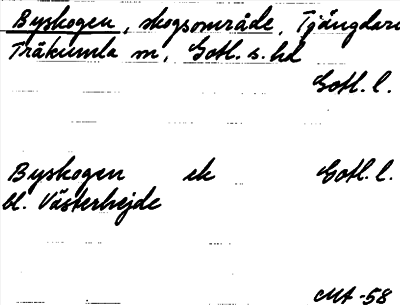 Byskogen, skogsområde, Tjängdarve
Träkumla sn, Gotl. s. hd
Gotl. l.
Byskogen ek Gotl. l.
bl. Västerhejde
MA -58